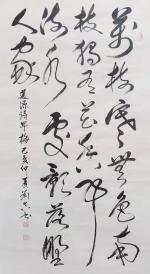 萬樹寒無色南
枝獨有花香聞
流水處影落野
人家
道源詩早梅己亥仲夏劉